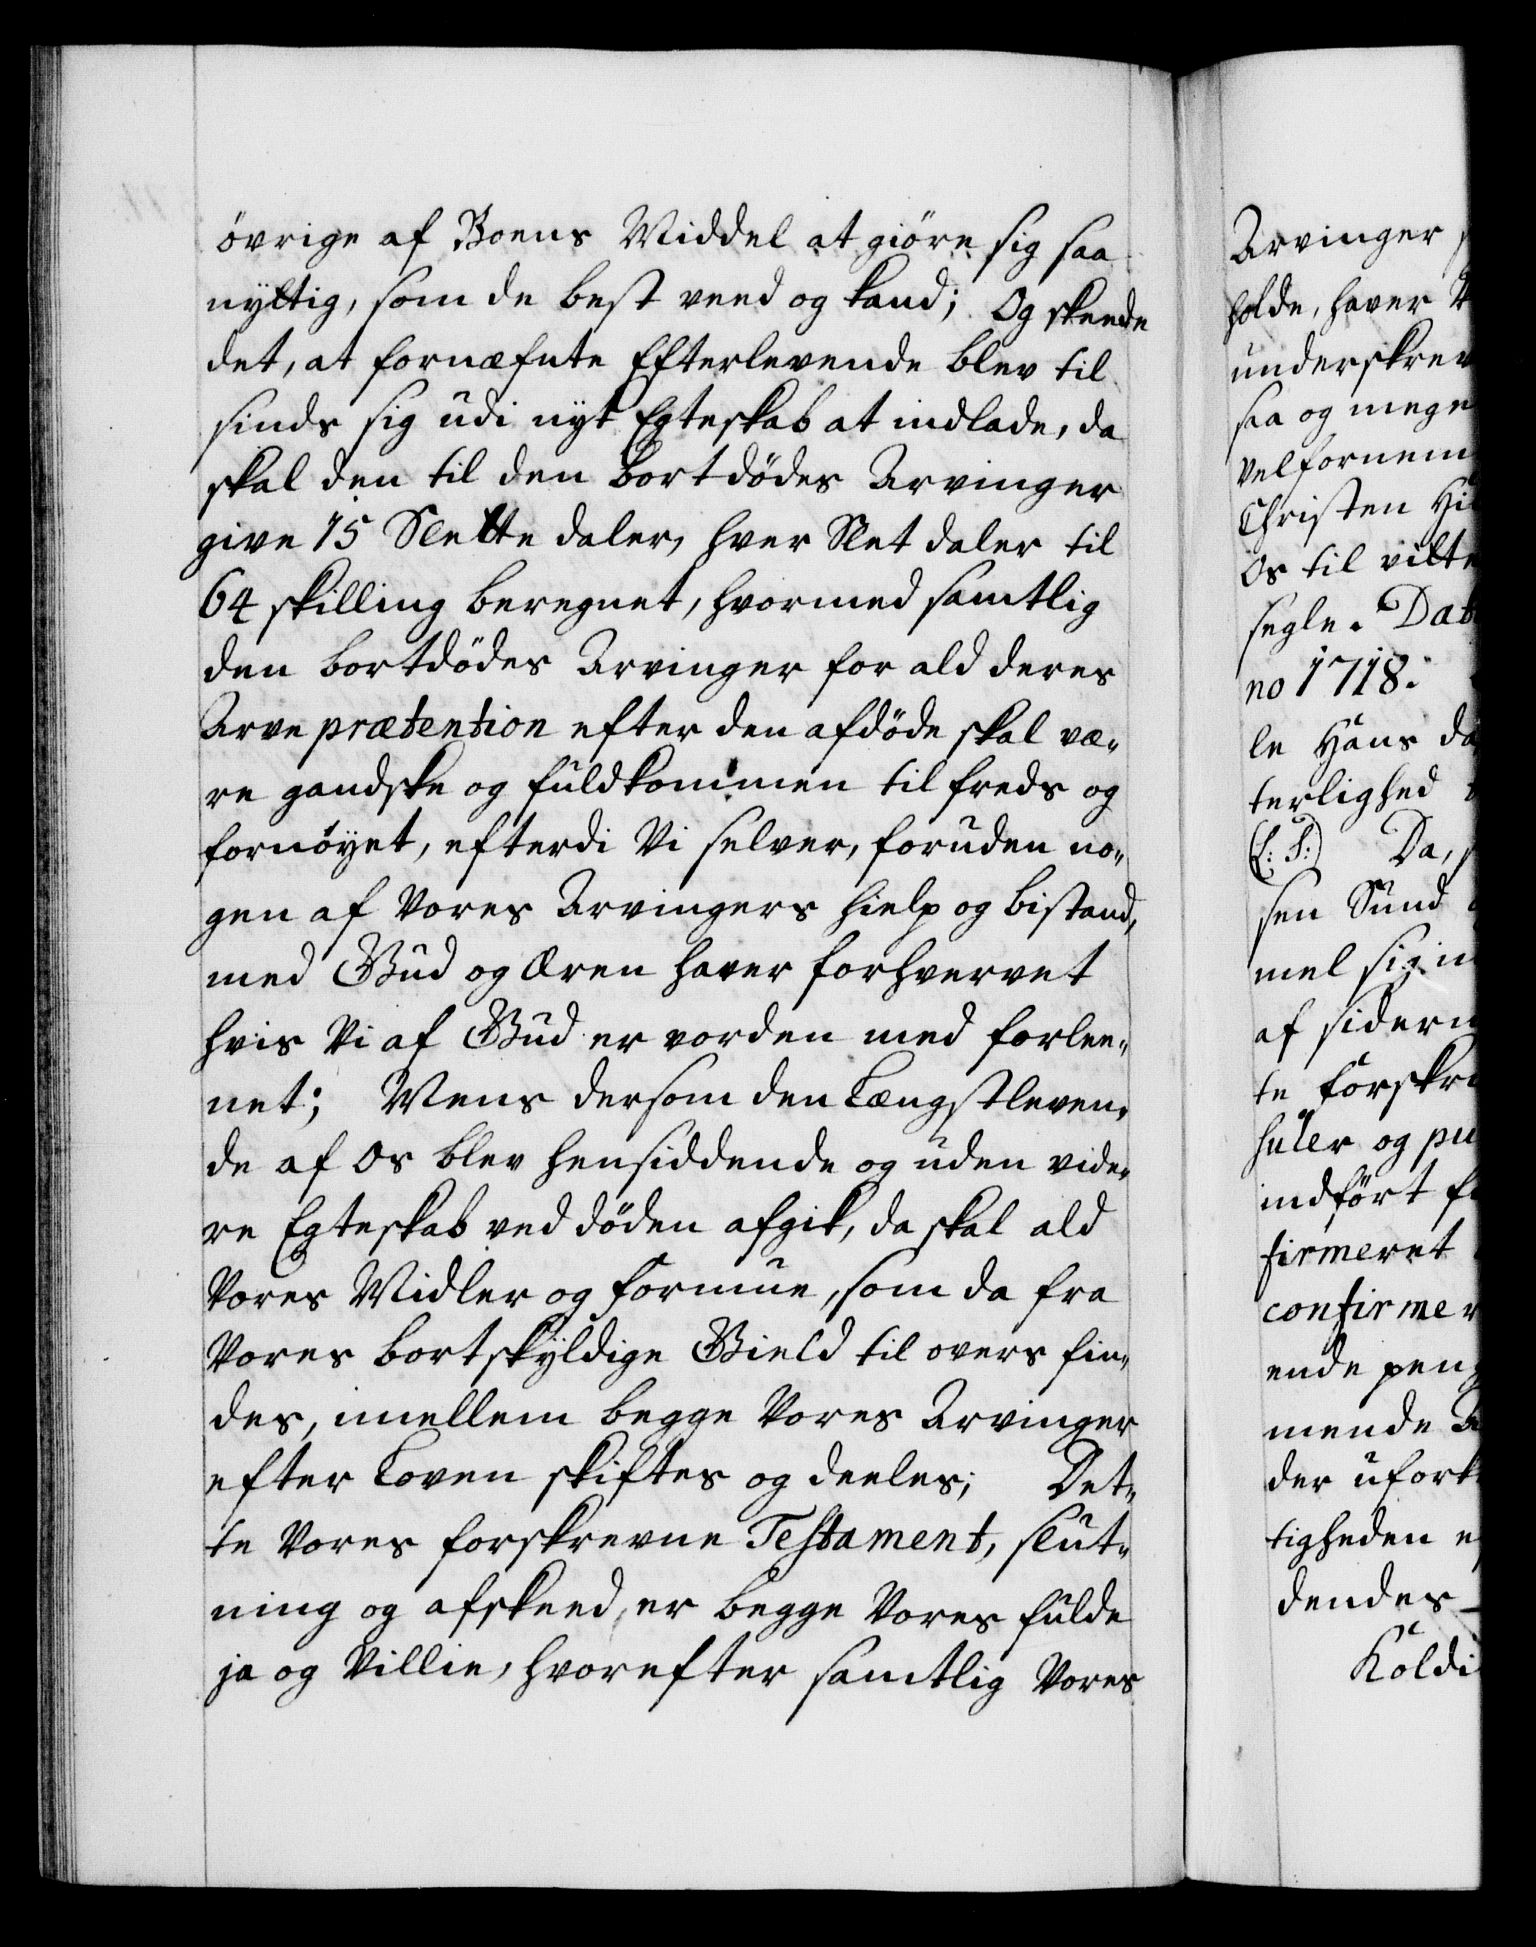 øvrige af Boens Middel at giøre sig saa
nyttig, som de best veed og kand; Og skeede
det, at fornæfnte Efterlevende blev til
sinds sig udi nyt Egteskab at indlade, da
skal den til den bortdødes Arvinger
give 15 Slette daler, hver Slet daler til
64 skilling beregnet, hvormed samtlig
den bortdødes Arvinger for ald deres
Arve prætention efter den afdøde skal væ„
re gandske og fuldkommen til freds og
fornøyet, efterdi Vi selver, foruden no„
gen af Vores Arvingers hielp og bistand,
med Gud og Æren haver forhvervet
hvis Vi af Gud er vorden med forlee„
net; Mens dersom den Længstleven„
de af Os blev hensiddende og uden vide„
re Egteskab ved døden afgik, da skal ald
Vores Midler og formue, som da fra
Vores bortskyldige Gield til overs fin„
des, imellem begge Vores Arvinger
efter Loven skiftes og deeles; Det„
te Vores forskrevne Testament, slut„
ning og afskeed, er begge Vores fulde
ja og Villie, hvorefter samtlig Vores
Arvinger
holde, haver
underskrev
saa og mege
Velfornem
Christen Hi
Os til vitte
segle. Dat
no 1718.
le Hans da
terlighed
(L: S:) Da,
sen Sund
mel sig in
af siderm
te forskre
huler og pu
indført
firmeret
confirmer
ende peng
mende
der ufork
tigheden e
dendes
Koldi